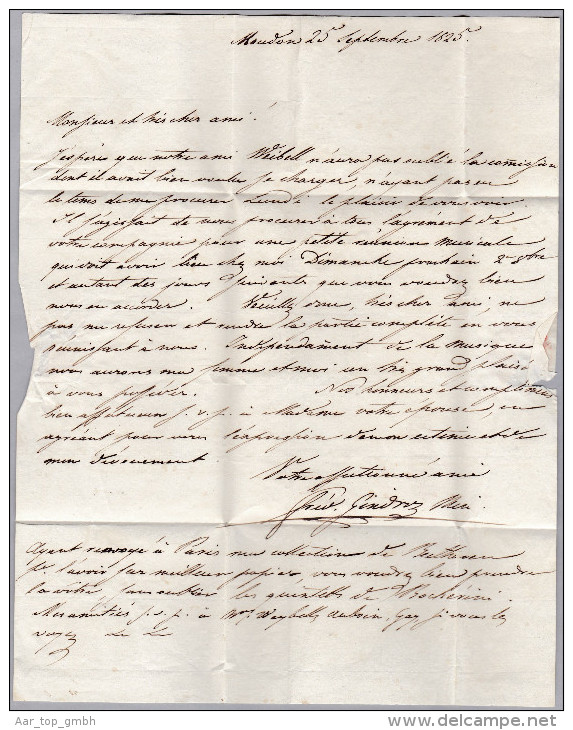 Moudon 25 Septembre 1825.
Monsieur et très cher ami!
J'espère que notre ami Weibell n'aura pas oublié la comission
dont il avait bien voulu se charger, n'ayant pas eu
le tems de me procurer Lundi le plaisir de vous voir.
Il s'agissait de nous procurer à tous l'agrément de
votre compagnie pour une petite réunion musicale
qui doit avoir lieu chez moi Dimanche prochain 2 8bre
et autant des jours suivants que vous voudrez bien
nous en accorder. Veuillez donc, très cher ami, ne
pas me refuser et rendre la partie complète en vous
réunissant à nous. Indépendament de la musique
nous aurons ma femme et moi un très grand plaisir
à vous posséder. Nos honneurs et complimens
bien affectueux s. v. p. à Madame votre épouse, en
agréant pour vous l'expression de mon estime et de
mon dévouement.
Votre affectionné ami
Fréd. Gindroz
Ayant renvoyé à Paris ma collection de Beethoven
pr. l'avoir sur meilleur papier vous voudrez bien prendre
la vôtre, sans oublier les quintetts de Bocherini.
Mes amitiés s. v. p. à Mrs. Weybell, Auboin, Gay si vous les
voyez
Aar_top_gmbh
www.delcampe.net